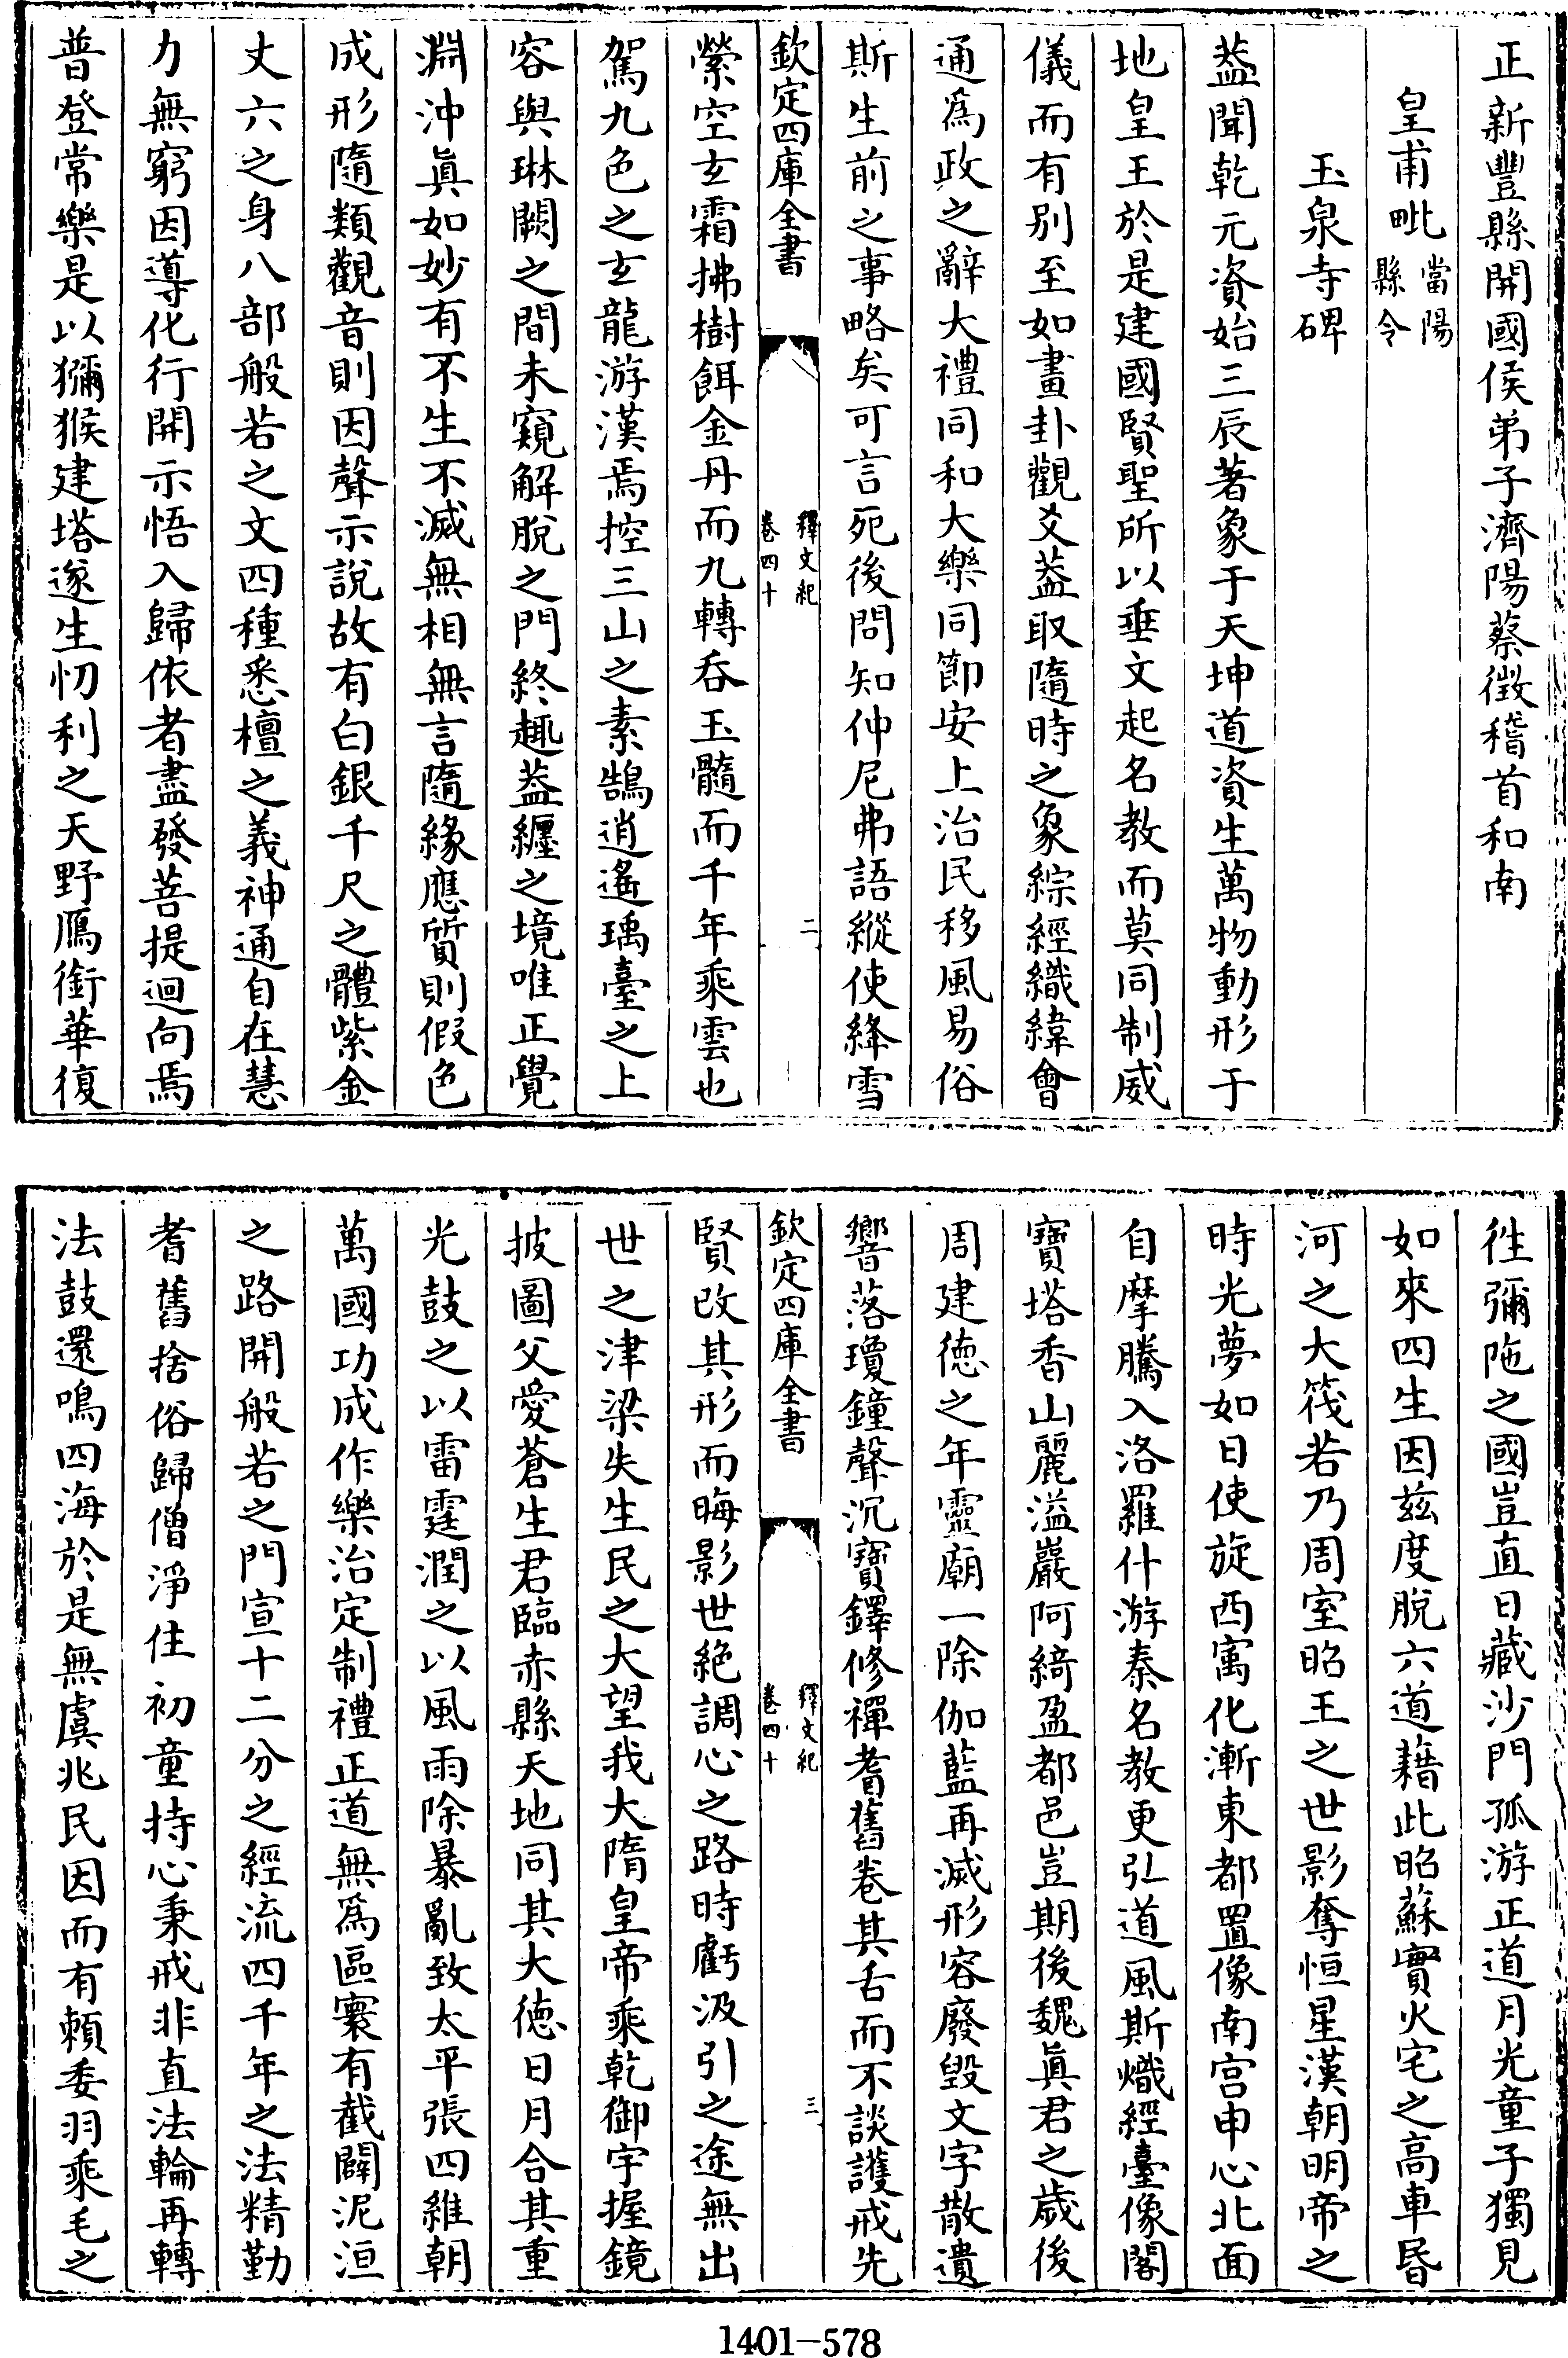 正新豐縣開國侯弟子濟陽蔡徵稽首和南
皇甫毗當陽縣令
玉泉寺碑
葢聞乾元資始三辰著象于天坤道資生萬物動形于
地皇王於是建國賢聖所以垂文起名教而莫同制威
儀而有别至如畫卦觀爻葢取隨時之象綜經織緯會
通爲政之辭大禮同和大樂同節安上治民移風易俗
斯生前之事略矣可言死後問知仲尼弗語縱使絳雪
欽定四庫全書
釋文紀
卷四十
二
縈空玄霜拂樹餌金丹而九轉呑玉髓而千年乘雲也
駕九色之玄龍游漢焉控三山之素鵠逍遙瑀臺之上
容與琳闕之間未窺解脫之門終趣葢纒之境唯正覺
淵沖眞如妙有不生不滅無相無言隨緣應質則假色
成形隨類觀音則因聲示說故有白銀千尺之體紫金
丈六之身八部般若之文四種悉檀之義神通自在慧
力無窮因導化行開示悟入歸依者盡發菩提迴向焉
普登常樂是以獼猴建塔遂生忉利之天野鴈銜華復
徃彌陁之國豈直日藏沙門孤游正道月光童子獨見
如來四生因兹度脫六道藉此昭蘇實火宅之高車昏
河之大筏若乃周室昭王之世影奪恒星漢朝明帝之
時光夢如日使旋西寓化漸東都置像南宫申心北面
自摩騰入洛羅什游秦名教更弘道風斯熾經臺像閣
寶塔香山麗溢巖阿綺盈都邑豈期後魏眞君之歲後
周建德之年靈廟一除伽藍再滅形容廢毀文字散遺
響落瓊鐘聲沉寶鐸修禪耆舊卷其舌而不談護戒先
欽定四庫全書
釋文紀
卷四十
三
賢改其形而晦影世絶調心之路時虧汲引之途無出
世之津梁失生民之大望我大隋皇帝乘乾御宇握鏡
披圖父愛蒼生君臨赤縣天地同其大德日月合其重
光鼓之以雷霆潤之以風雨除暴亂致太平張四維朝
萬國功成作樂治定制禮正道無爲區寰有截闢泥洹
之路開般若之門宣十二分之經流四千年之法精勤
耆舊捨俗歸僧淨住初童持心秉戒非直法輪再轉
法鼓還鳴四海於是無虞兆民因而有頼委羽乘毛之
1401-578